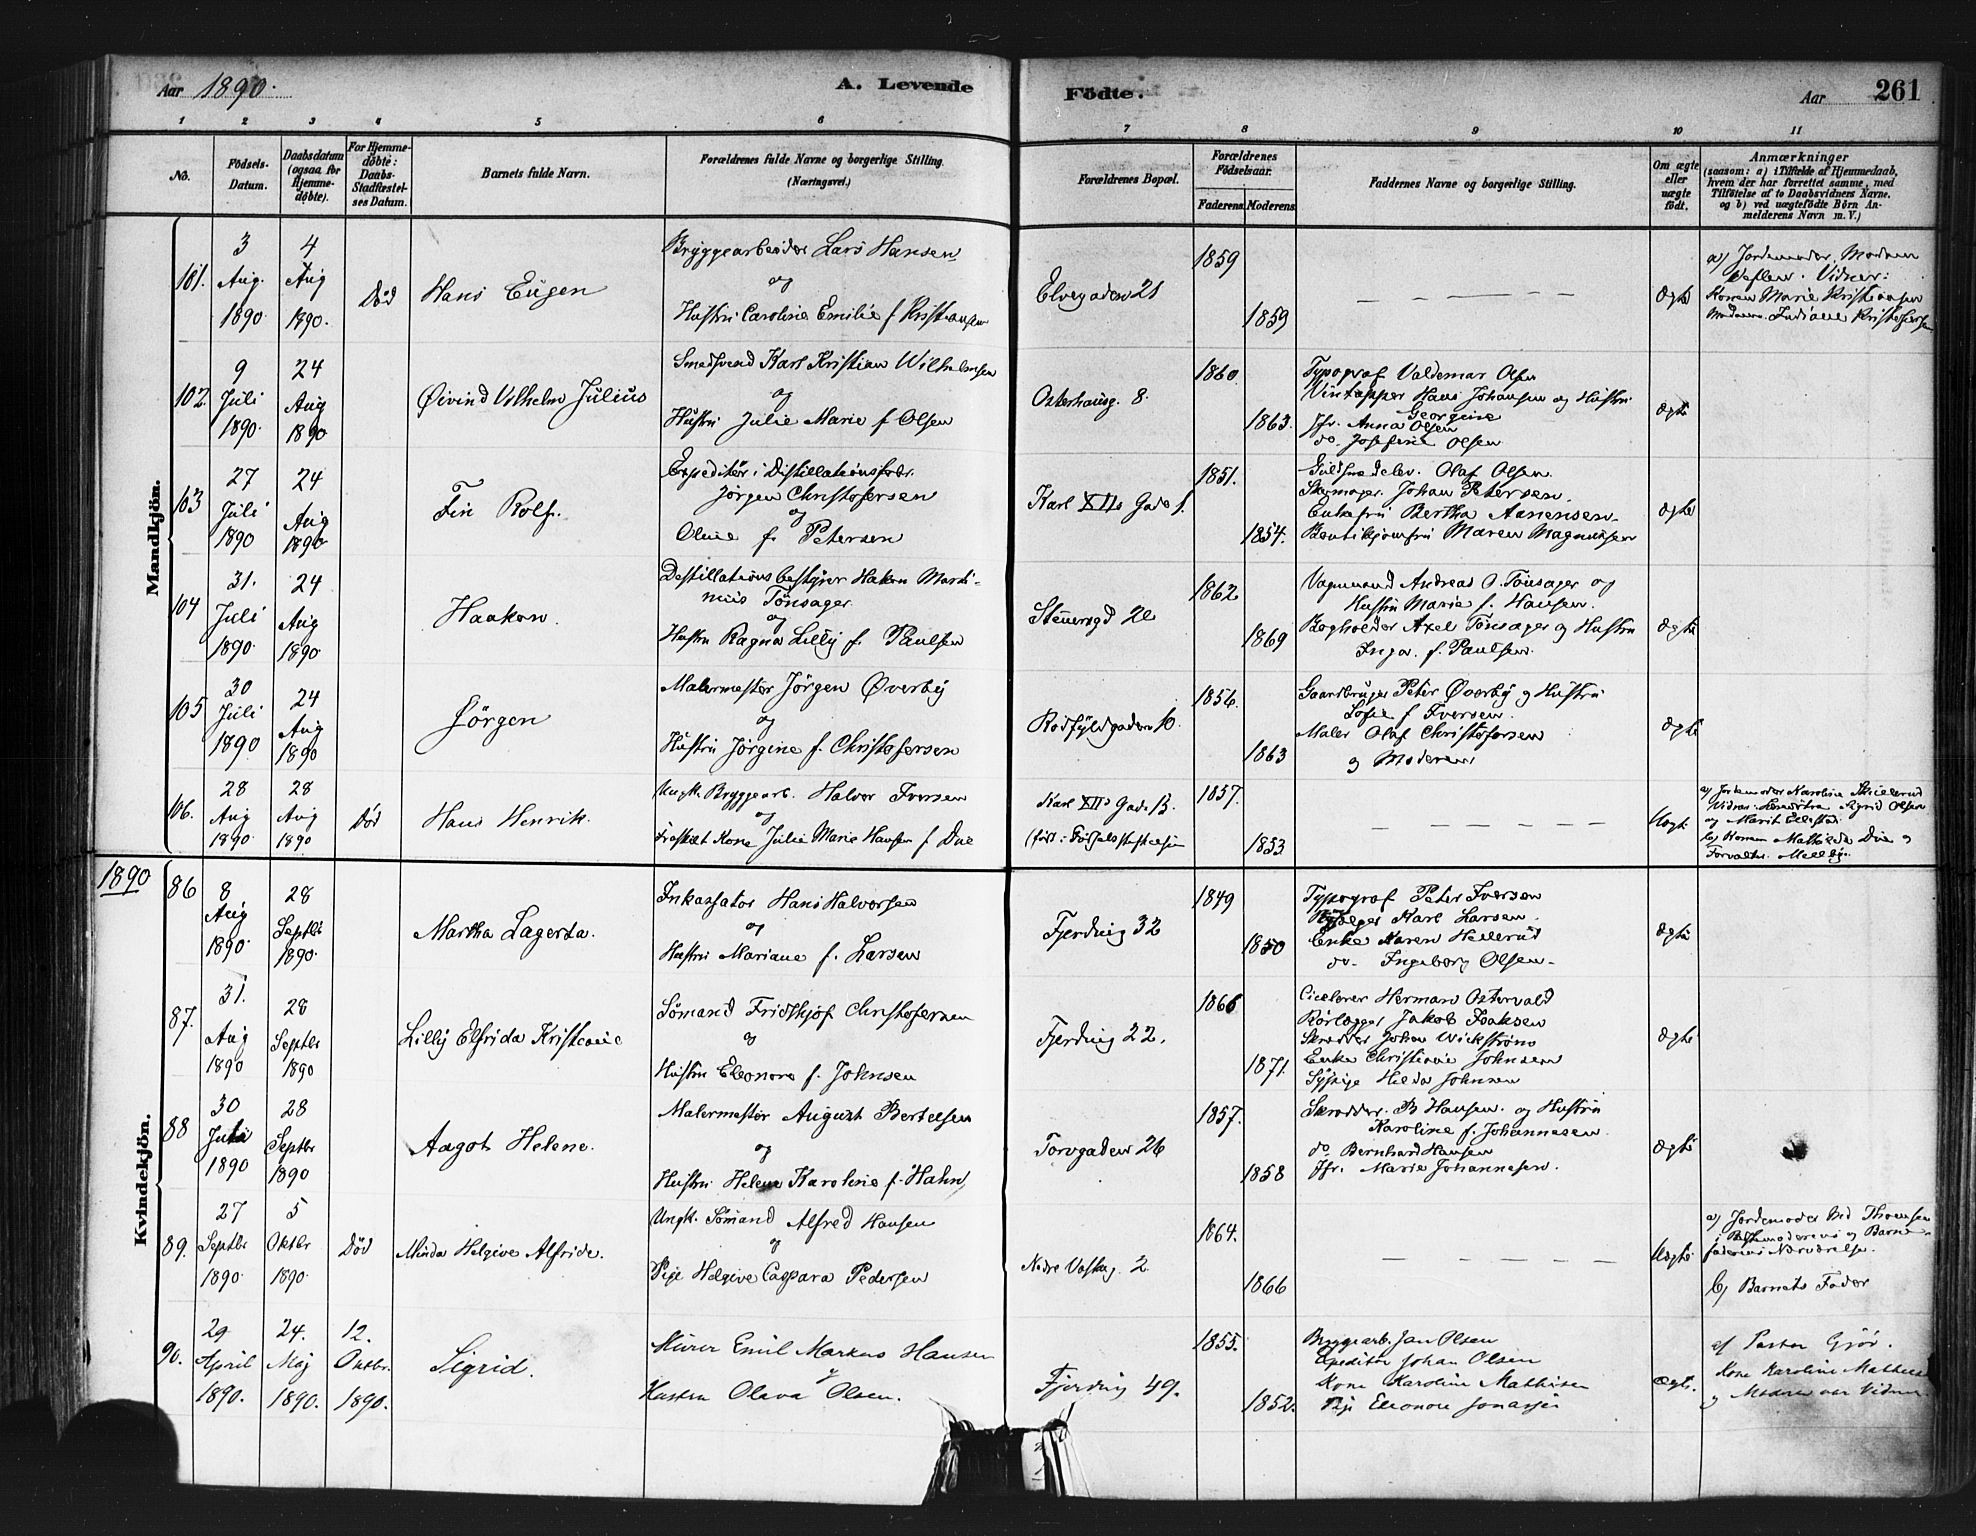 Aar 1890.
A. Levende Födte.
Aar
261
1 2 3 4 5 6 7 8 9 10 11
No.
Födsels-Datum.
Daabsdatum (ogsaa for Hjemme-döbte).
For Hjemme-döbte: Daabs-Stadfæstel-ses Datum.
Barnets fulde Navn.
Forældrenes fulde Navne og borgerlige Stilling. (Næringsvei.)
Forældrenes Bopæl.
Forældrenes Födselsaar.
Faderens. Moderens.
Faddernes Navne og borgerlige Stilling.
Om ægte eller uægte födt.
Anmærkninger
(saasom: a) i Tilfælde af Hjemmedaab,
hvem der har forrettet samme, med
Tilföielse af to Daabsvidners Navne,
og b) ved uægtefödte Börn An-
melderens Navn m. V.)
Mandkjön.
101. 3 Aug. 1890 4 Aug 1890. Död Hans Eugen
Bryggearbeider Lars Hansen
og
Hustru Caroline Emilie f Kristiansen
Elvegaden 21 1859 1859 Ægte
a) Jordemoder Madam
Vidner:
Konen Marie Kristiansen
102. 9 Juli 1890 24 Aug 1890 Øivind Vilhelm Julius
Smedsvend Karl Kristian Wilhelmsen
og
Hustru Julie Marie f Olsen
Osterhausg. 8. 1860 1863.
Typograf Valdemar Olsen
Vintapper Hans Johansen og Hustru
Georgine
Jfr. Anna Olsen
do. Josefine Olsen
Ægte
103 27 Juli 1890 24 Aug 1890 Fin Rolf.
Expeditör i Distillationsforr.
Jörgen Christofersen
og
Oline f. Petersen
Karl XIIs Gade 1. 1851. 1854.
Guldsmedelev. Olaf Olsen.
Johan Petersen.
Enkefru Bertha Aanensen.
Butikjomfru Maren Magnussen
Ægte
104 31. Juli 1890 24 Aug 1890 Haakon.
Destillationsbestyrer Hakon Marti-
nius Tönsager
og
Hustru Ragna Lilly f. Paulsen
1862 1869
Vognmand Andreas O. Tönsager og
Hustru Marie f. Hansen.
Bogholder Axel Tönsager og Hustru
Inga. f. Paulsen.
Ægte
105 30 Juli 1890 24 Aug 1890 Jörgen
Malermester Jörgen Øverby
og
Hustru Jörgine f. Christofersen
Rödfyldgaden 10. 1856. 1863
Gaardbruger Peter Øverby og Hustru
Sofie f Iversen.
Maler Olaf Christofersen
og Moderen
Ægte
106. 28 Aug 1890 28 Aug 1890 Död Hans Henrik.
Ungk. Bryggearb. Halvor Iversen
og
Fraskilt Kone Julie Marie Hansen f Due
Karl XIIs Gade 13.
(född i Födselsstiftelsen
1857. 1853. Uægte
a) Jordemoder Karoline
Vidner: Sigrid Olsen
og Marit
b) Konen Mathilde Due og
Forvalter
1890
Kvindekjön.
86 8 Aug 1890 28 Septbr 1890. Martha Lagerta.
Inkassator Hans Halvorsen
og
Hustru Mariane f. Larsen
Fjerding 32 1849 1850
Typograf Peter Iversen
Karl Larsen.
Enke Karen Hellerud
do. Ingeborg Olsen.
Ægte
87. 31. Aug 1890 28 Septbr 1890 Lilly Elfrida Kristiane
Sömand Fridthjof Christofersen
og
Hustru Eleonora f. Johnsen
Fjerding 22. 1866 1871.
Ciselerer Herman Ostervald
Rörlægger Jakob Isaksen
Skrædder Johan Wickström
Enke Christiane Johnsen
Sypige Hilda Johnsen
Ægte
88 30 Juli 1890 28 Septbr 1890 Aagot Helene.
Malermester August Bertelsen
og
Hustru Helene Karoline f. Hahn
Torvgaden 26 1857. 1858
Skrædder. B Hansen. og Hustru
Karoline f. Johannesen.
do Bernhard Hansen
Jfr. Marie Johannesen.
Ægte
89. 27 Septbr 1890 5 Oktbr 1890. Död Minda Helgine Alfride.
Ungk. Sömand Alfred Hansen
og
Pige Helgine Caspara Pedersen
Nedre Voldg. 2. 1864. 1866 Uægte
a) Jordemoder Thomsen
i Bestemoderens og Barne-
faderens Nærværelse.
b) Barnets Fader
90. 29 April 1890. 24. Maj 1890. 12. Oktbr. 1890. Sigrid.
Murer Emil Markus Hansen
og
Hustru Olava Olsen.
Fjerding 49. 1855. 1852.
Bryggearb. Jan Olsen
Expeditör Johan Olsen
Kone Karoline Mathisen
Pige Eleonore Jonassen
Ægte.
af Pastor Gjör.
Kone Karoline Mathisen
og Moderen var Vidner